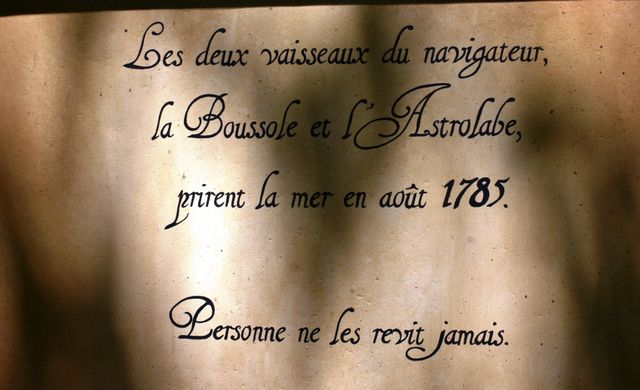 Les deux vaisseaux du navigateur,
la Boussole et l'Astrolabe,
prirent la mer en août 1785.
Personne ne les revit jamais.